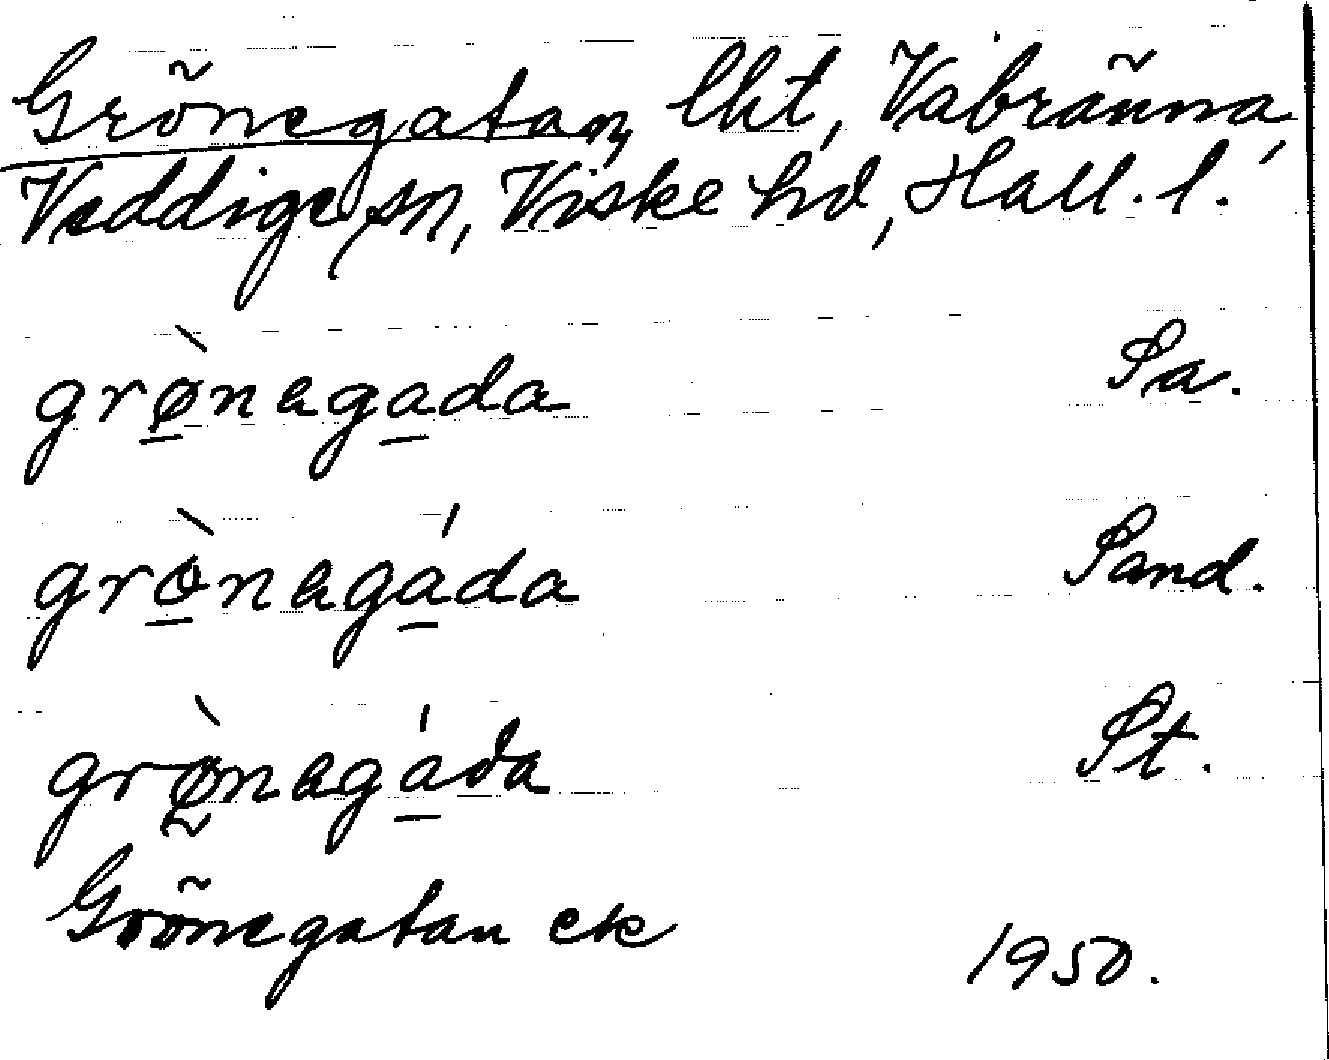 Grönegatan, lht, Vabränna,
Veddige sn, Viske hd, Hall. l.
grø̀nagada Sa.
grònagáda Sand.
grø̀nagáda St.
Grönegatan ek 1950.